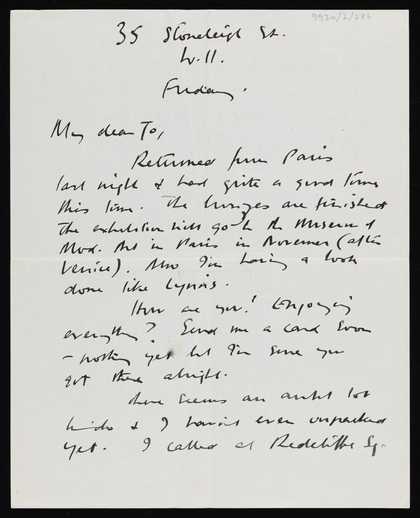 9920/2/286
35 Stoneleigh St.
W.11.
Friday.
My dear To,
Returned from Paris
last night & had quite a good time
this time. The bronzes are finished
The exhibition will go to the Museum of
Mod. Art in Paris in November (after
Venice). Also I'm having a book
done like Lynn's.
How are you! Enjoying
everything? Send me a card soon
– nothing yet but I'm sure you
got there alright.
There seems an awful lot
to do & I haven't even unpacked
yet. I called at Redcliffe Sq.